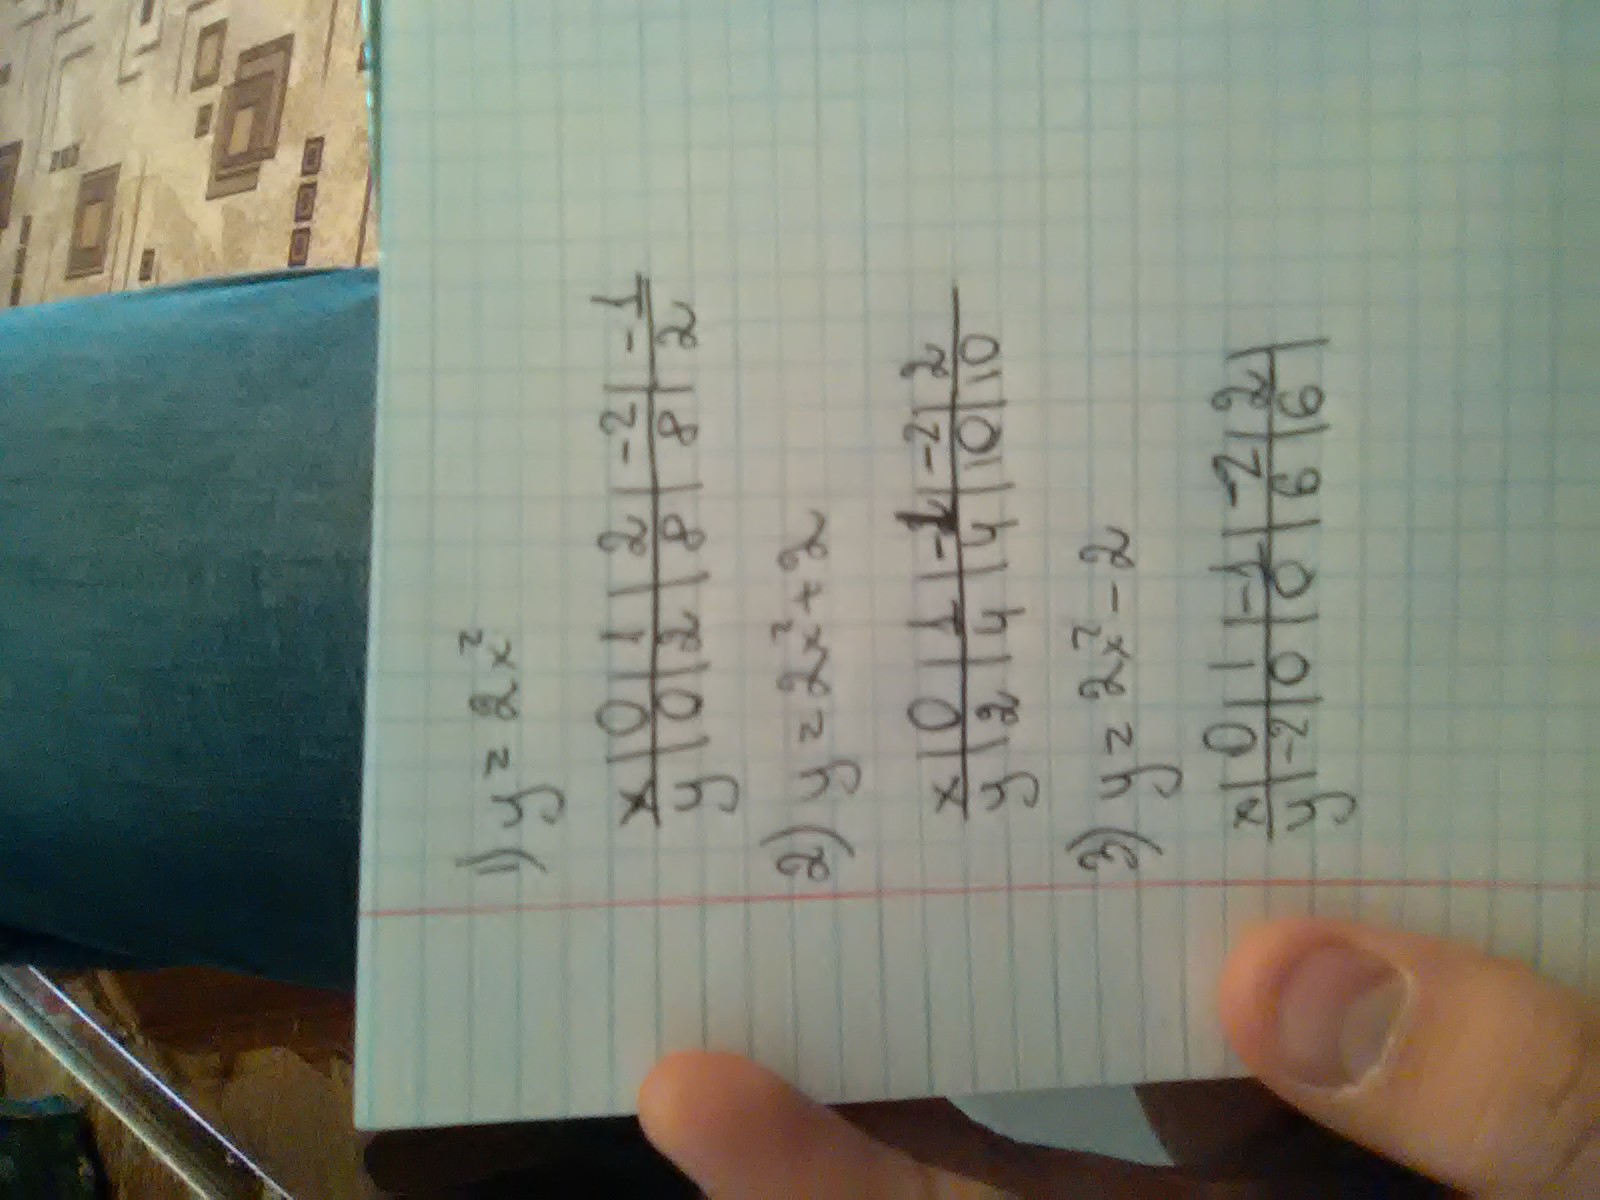 1) y = 2x²
x | 0 | 1 | 2 | -2 | -1
y | 0 | 2 | 8 | 8 | 2
2) y = 2x² + 2
x | 0 | 1 | -1 | -2 | 2
y | 2 | 4 | 4 | 10 | 10
3) y = 2x² - 2
x | 0 | 1 | -1 | -2 | 2 |
y | -2 | 0 | 0 | 6 | 6 |